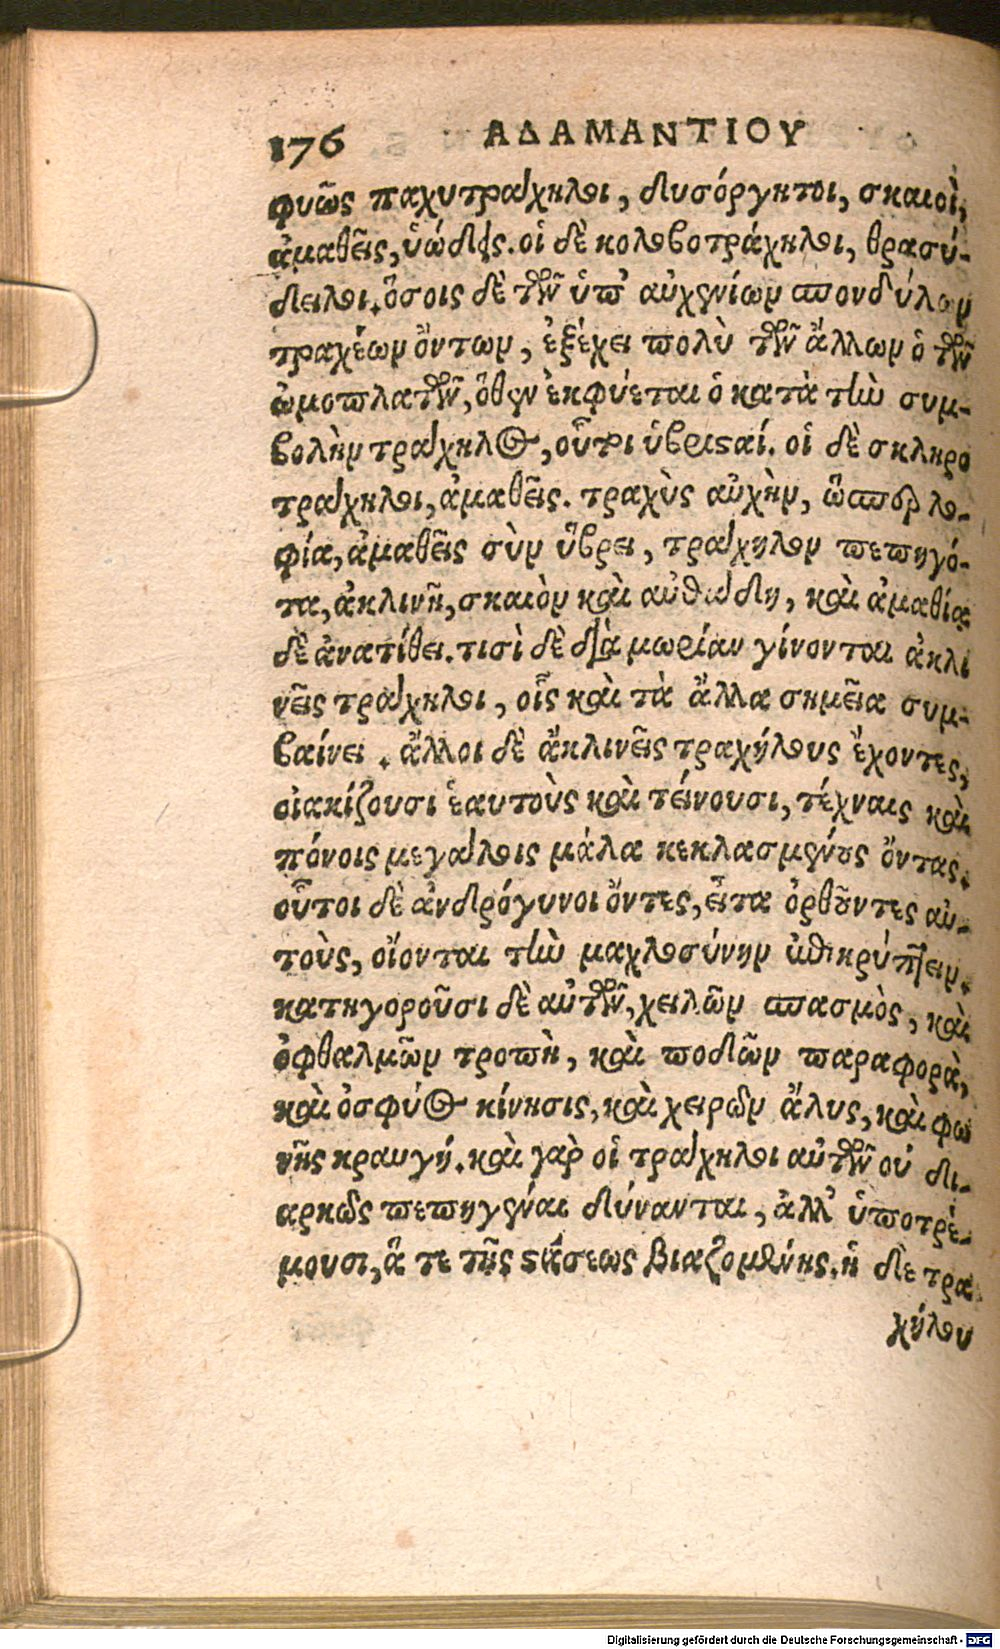 176 ΑΔΑΜΑΝΤΙΟΥ
φυῶς παχυτράχηλοι, δυσόργητοι, σκαιοὶ,
ἀμαθεῖς, ὑώδεις. οἱ δὲ κολοβοτράχηλοι, θρασύ-
δειλοι. ὅσοις δὲ τῶν ὑπ' αὐχενίων σπονδύλων
τραχέων ὄντων, ἐξέχει πολὺ τῶν ἄλλων ὁ τῶν
ὠμοπλατῶν, ὅθεν ἐκφύεται ὁ κατὰ τὴν συμ-
βολὴν τράχηλος, οὗτοι ὑβρισταί. οἱ δὲ σκληρο
τράχηλοι, ἀμαθεῖς. τραχὺς αὐχὴν, ὥσπερ λο-
φία, ἀμαθεῖς σὺν ὕβρει, τράχηλον πεπηγό-
τα, ἀκλινῆ, σκαιὸν καὶ αὐθάδη, καὶ ἀμαθίας
δὲ ἀνατίθει. τισὶ δὲ διὰ μωρίαν γίνονται ἀκλι
νεῖς τράχηλοι, οἷς καὶ τὰ ἄλλα σημεῖα συμ-
βαίνει. ἄλλοι δὲ ἄκλινεῖς τραχήλους ἔχοντες,
οἰακίζουσι ἑαυτοὺς καὶ τείνουσι, τέχναις καὶ
πόνοις μεγάλοις μάλα κεκλασμένους ὄντας.
οὗτοι δὲ ἀνδρόγυνοι ὄντες, εἶτα ὀρθοῦντες αὐ-
τοὺς, οἴονται τὴν μαχλοσύνην ἀποκρύπτειν.
κατηγοροῦσι δὲ αὐτῶν, χειλῶν σπασμὸς, καὶ
ὀφθαλμῶν τροπὴ, καὶ ποδῶν παραφορὰ,
καὶ ὀσφύος κίνησις, καὶ χειρῶν ἄλυς, καὶ φω
νῆς κραυγή. καὶ γὰρ οἱ τράχηλοι αὐτῶν οὐ δι-
αρκῶς πεπηγέναι δύνανται, ἀλλ' ὑποτρέ-
μουσι, ἅ τε τῆς στάσεως βιαζομένης. ἡ δὲ τρα
χήλου
Digitalisierung gefördert durch die Deutsche Forschungsgemeinschaft - DFG